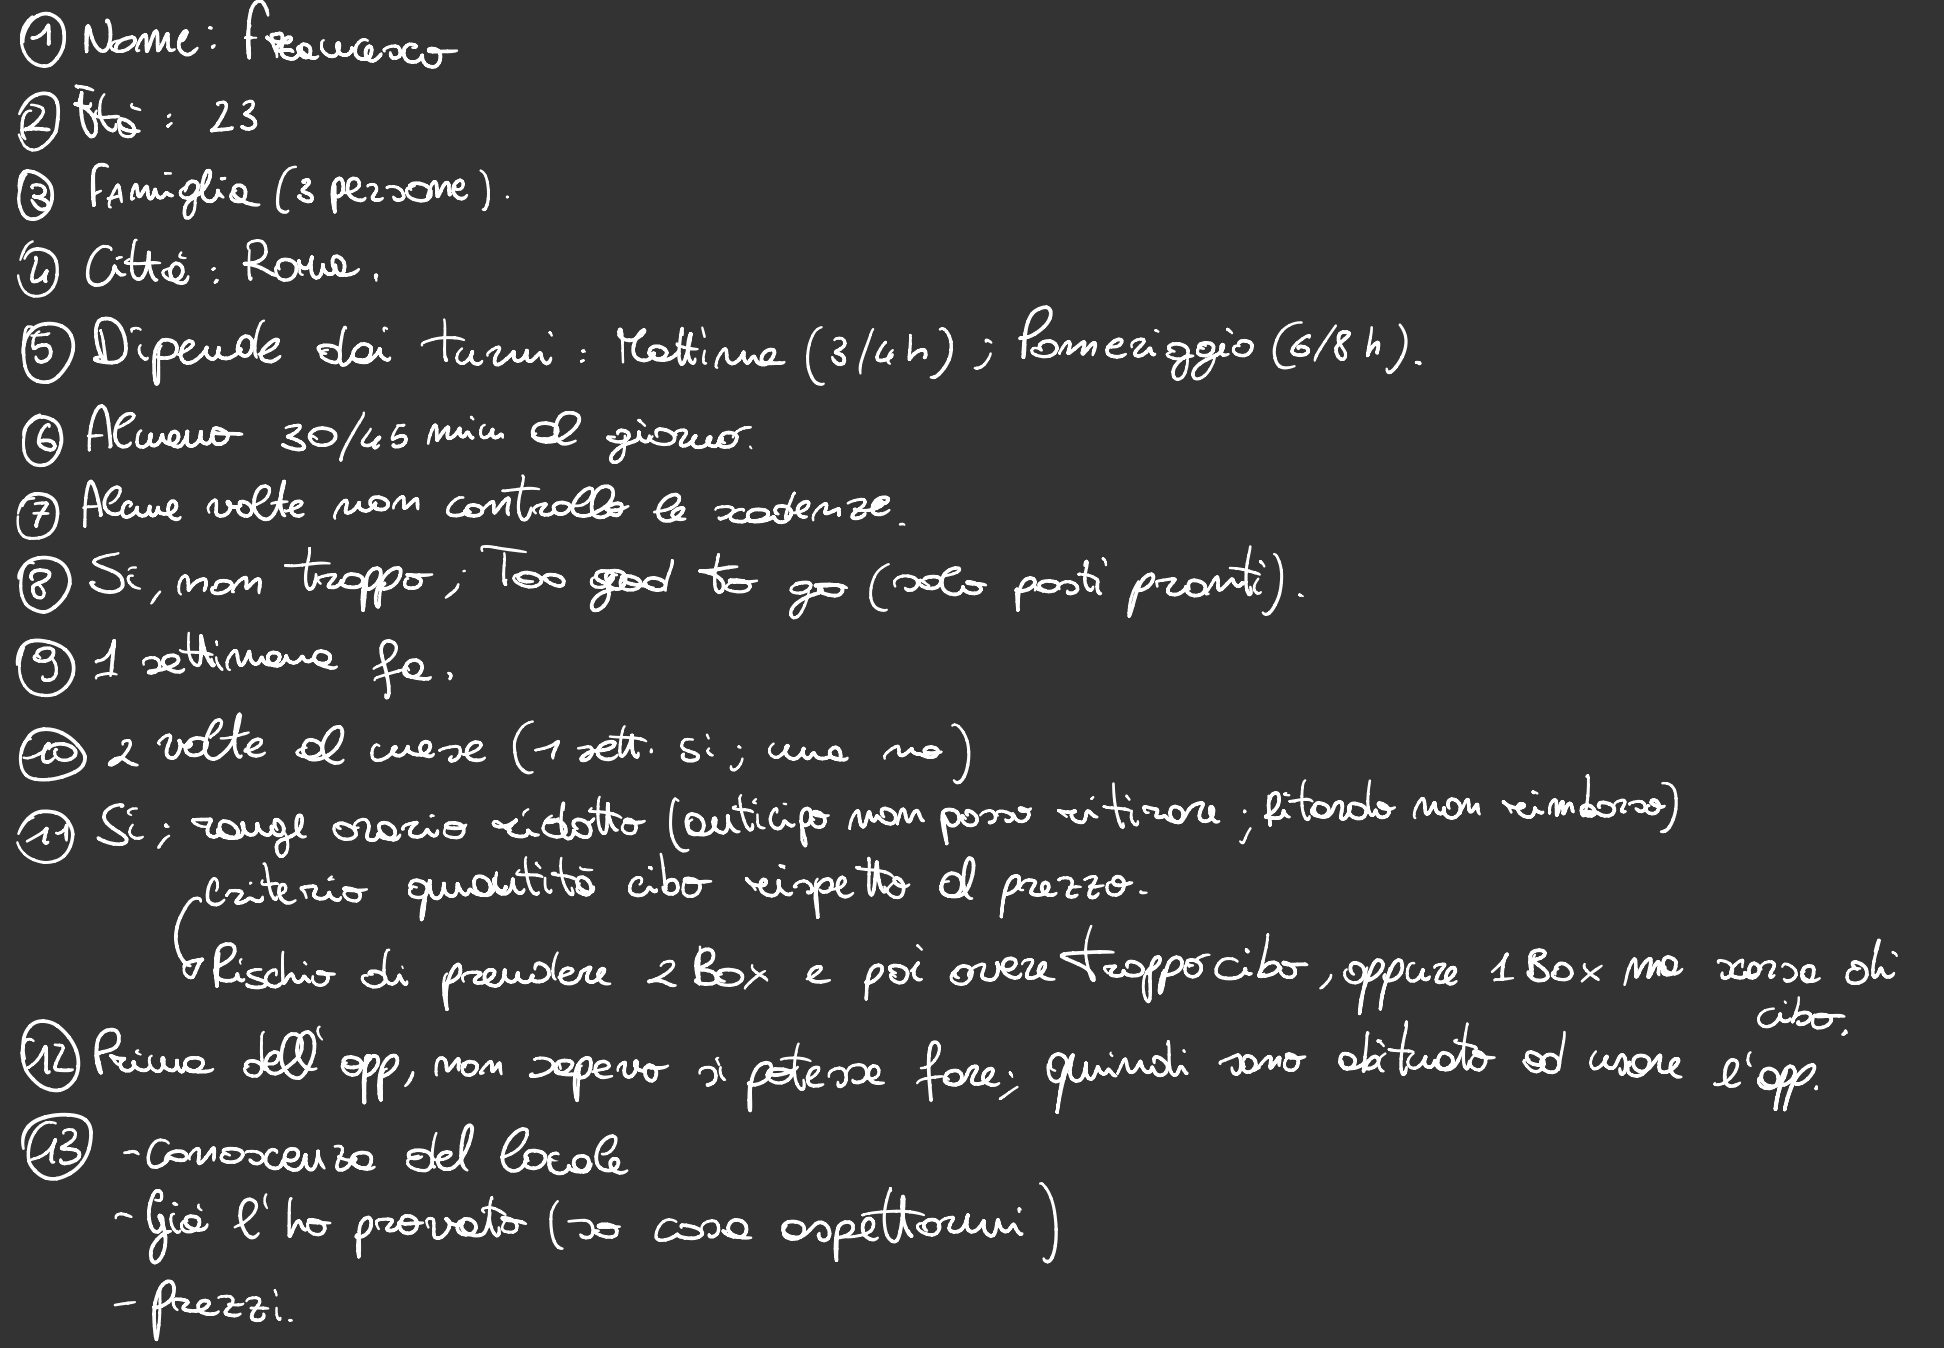 ① Nome: Francesco
② Età: 23
③ Famiglia (3 persone).
④ Città: Roma.
⑤ Dipende dai turni: Mattina (3/4h); Pomeriggio (6/8 h).
⑥ Almeno 30/45 min al giorno.
⑦ Alcune volte non controllo le scadenze.
⑧ Si, non troppo; Too good to go (solo pasti pronti).
⑨ 1 settimana fa.
⑩ 2 volte al mese (1 sett. si; una no)
⑪ Si; range orario ridotto (anticipo non posso ritirare; Ritardo non rimborso)
criterio quantità cibo rispetto al prezzo.
Rischio di prendere 2 Box e poi avere troppo cibo, oppure 1 Box ma scarsa di
cibo.
⑫ Prima dell'app, non sapevo si potesse fare; quindi sono abituato ad usare l'app.
⑬ - conoscenza del locale
- Già l'ho provato (so cosa aspettarmi)
- prezzi.